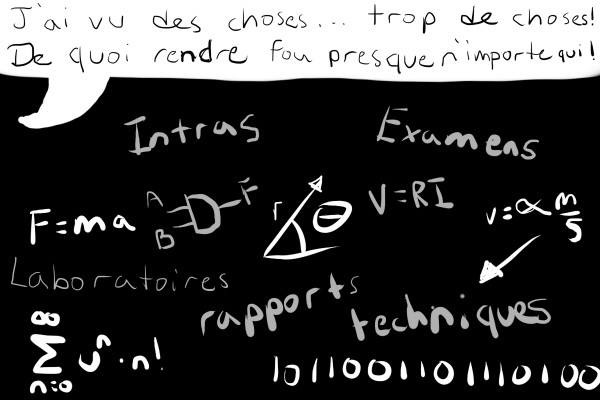 J'ai vu des choses... trop de choses!
De quoi rendre fou presque n'importe qui!
Intras
Examens
F=ma
A
B
F
r
θ
V=RI
v=α m/s
Laboratoires
rapports
techniques
∞
Σ uⁿ·n!
n=0
1011001101110100